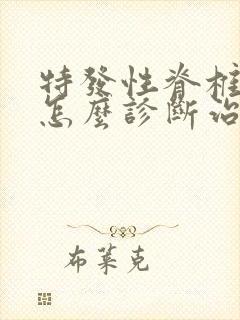 特發性脊柱
怎麼診斷治
布萊克